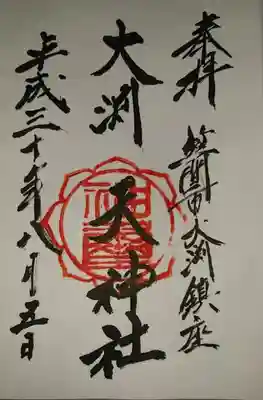 奉拝
笠間市大渕鎮座
大渕
天神社
平成三十年八月五日